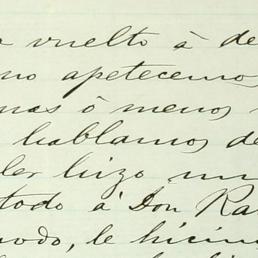 vuelto à de
no apetecemos
mas ó menos
hablamos de
ler hizo un
todo à Don Ra
modo, le hicim